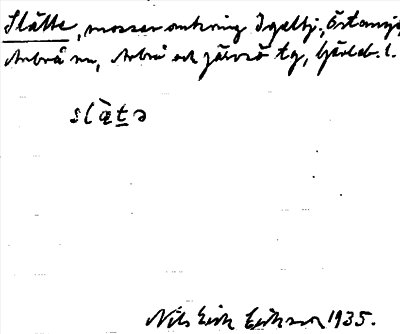 Slätte, mossar omkring Igeltj., Östansjö,
Arbrå sn, Arbrå och Järvsö tg, Gävleb. l.
slä̀tə
Nils Erik Eriksson 1935.